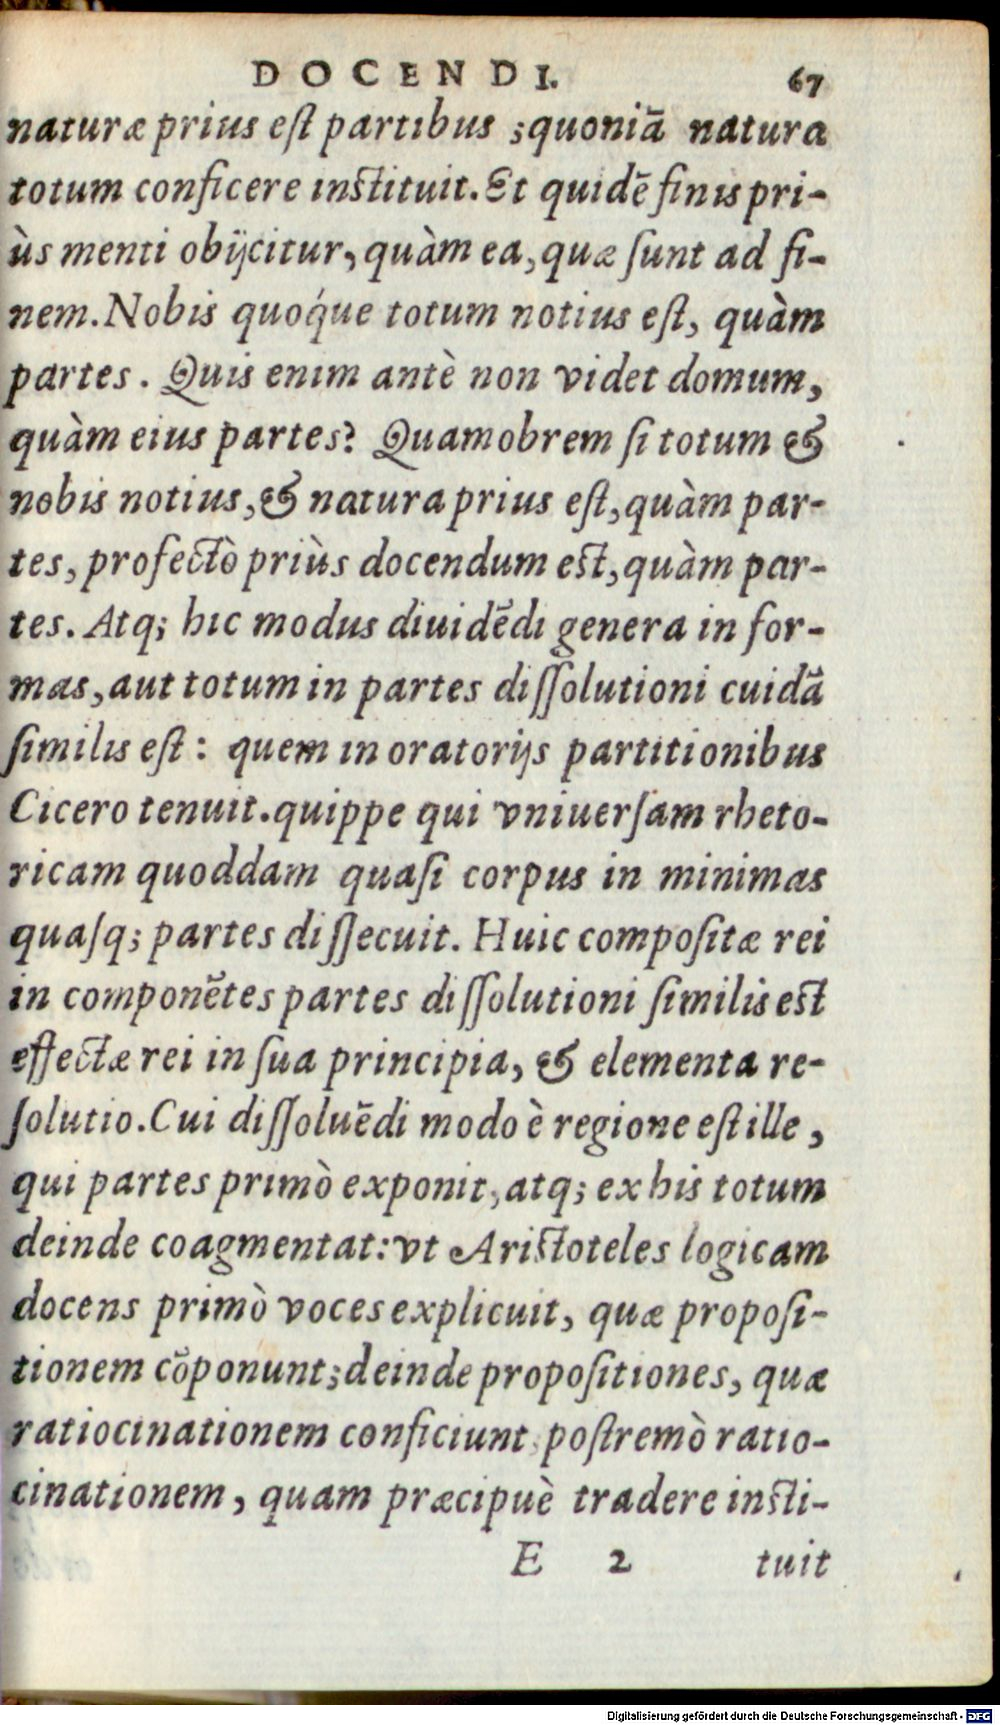 DOCENDI. 67
naturæ prius eſt partibus ;quoniā natura
totum conficere inſtituit. Et quidē finis pri-
ùs menti obijcitur, quàm ea, quæ ſunt ad fi-
nem. Nobis quoq́ue totum notius eſt, quàm
partes. Quis enim antè non videt domum,
quàm eius partes? Quamobrem ſi totum &
nobis notius, & natura prius eſt, quàm par-
tes, profectò priùs docendum eſt, quàm par-
tes. Atq; hic modus diuidēdi genera in for-
mas, aut totum in partes diſſolutioni cuidā
ſimilis eſt: quem in oratorijs partitionibus
Cicero tenuit. quippe qui vniuerſam rheto-
ricam quoddam quaſi corpus in minimas
quaſq; partes diſſecuit. Huic compoſitæ rei
in componētes partes diſſolutioni ſimilis eſt
effectæ rei in ſua principia, & elementa re-
ſolutio. Cui diſſoluēdi modo è regione eſt ille,
qui partes primò exponit, atq; ex his totum
deinde coagmentat: vt Ariſtoteles logicam
docens primò voces explicuit, quæ propoſi-
tionem cōponunt; deinde propoſitiones, quæ
ratiocinationem conficiunt, poſtremò ratio-
cinationem, quam præcipuè tradere inſti-
E 2 tuit
Digitalisierung gefördert durch die Deutsche Forschungsgemeinschaft - DFG